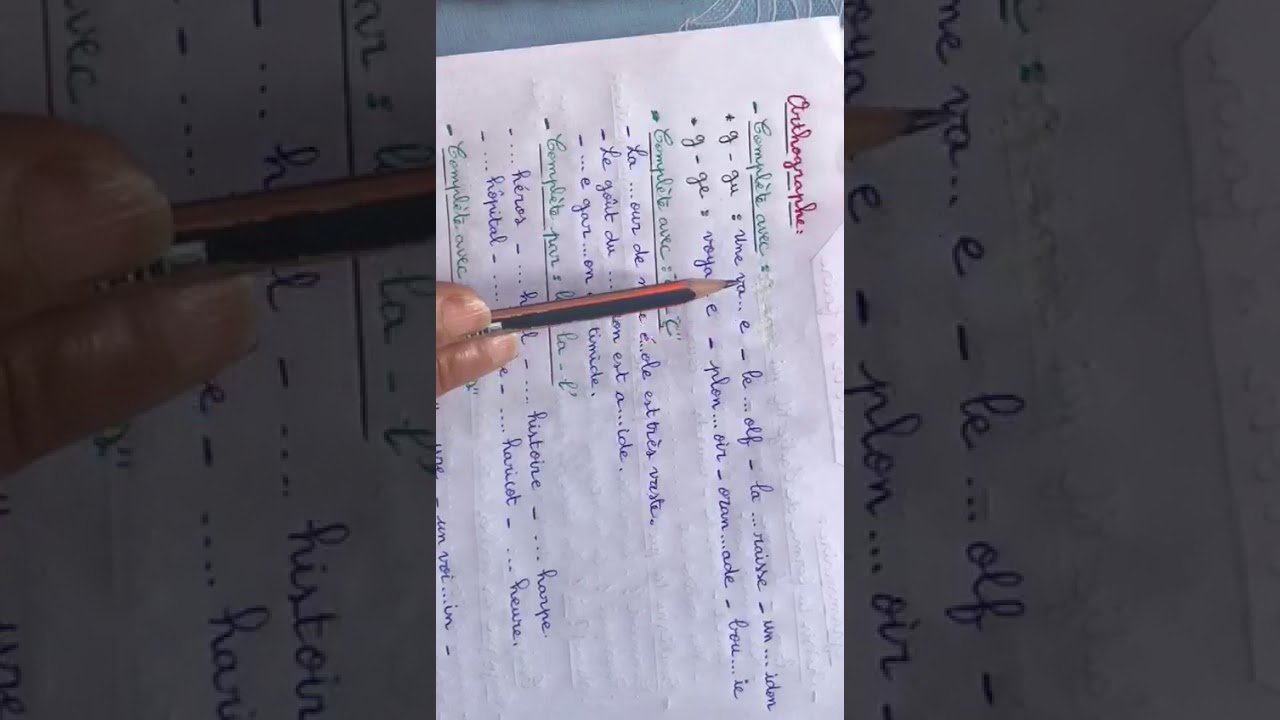 Orthographe:
- Complète avec :
* g - gu : une va... e - le ... olf - la ... raisse - un ... idon
* g - ge : voya e - plon... oir - oran... ade - bou... ie
* Complète avec : ç"
- La ... our de é...ole est très vaste.
- Le goût du ... on est a...ide.
- ... e gar...on timide.
- Complète par : l la - l'
- .... héros - ... h l - .... histoire - ... harpe.
- ... hôpital - .... e - .... haricot - ... heure.
- Complète avec
ure - un voi...in -